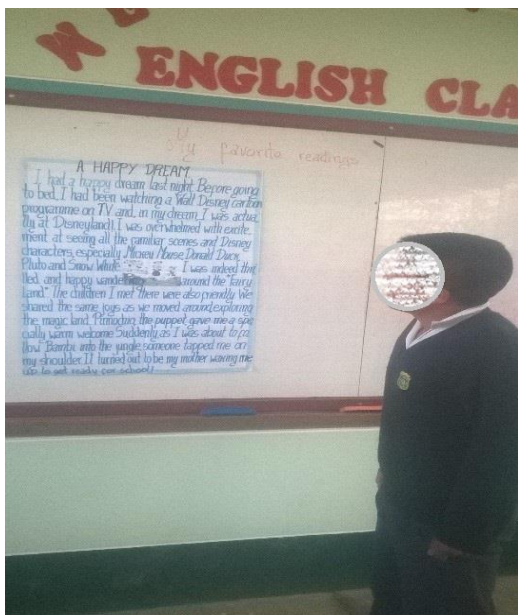 WE
ENGLISH CLA
My favorite readings
A HAPPY DREAM
I had a happy dream last night. Before going
to bed, I had been watching a Walt Disney cartoon
programme on TV and, in my dream, I was actua
lly at Disneyland! I was overwhelmed with excite
ment at seeing all the familiar scenes and Disney
characters, especially Mickey Mouse, Donald Duck,
Pluto and Snow White. I was indeed thri
lled and happy wande around the "fairy
land." The children I met there were also friendly. We
shared the same joys as we moved around, exploring
the magic land. Pinocchio, the puppet, gave me a spe
cially warm welcome. Suddenly, as I was about to fo
llow Bambi into the jungle, someone tapped me on
my shoulder. It turned out to be my mother waking me
up to get ready for school!